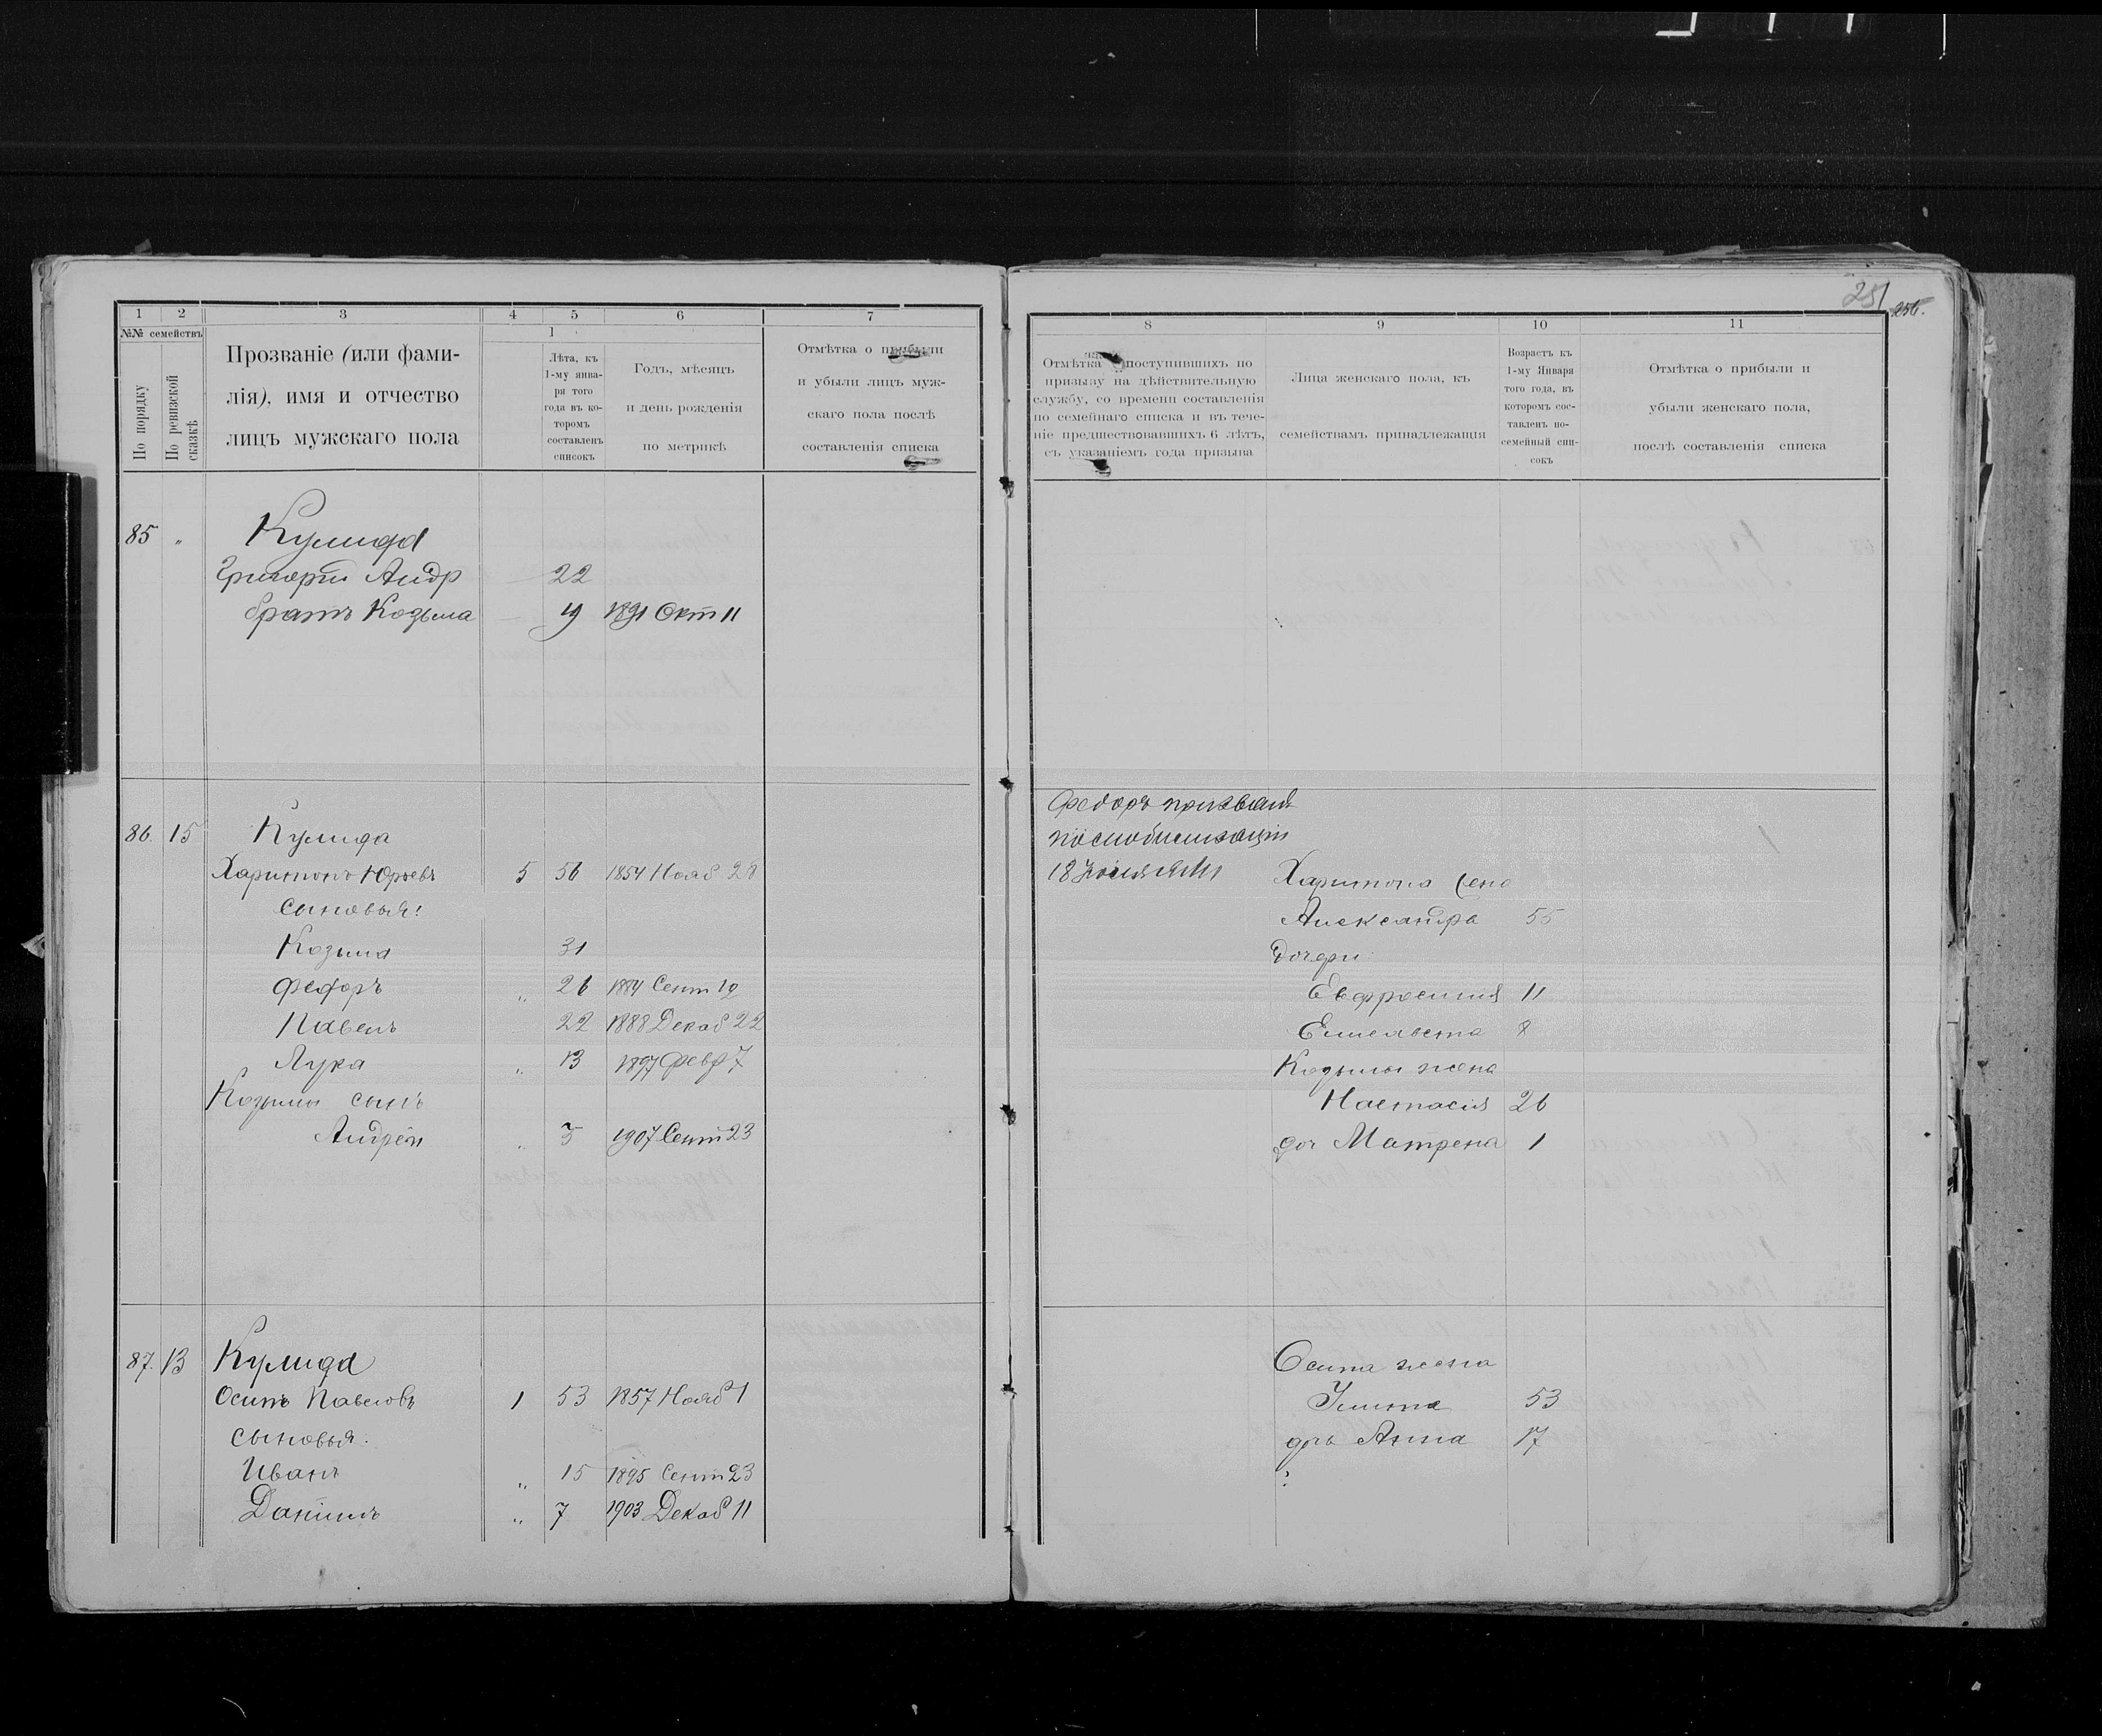 1 2 3 4 5 6 7
№№ семействъ
По порядку
По ревизской сказкѣ
Прозваніе (или фами-
лія), имя и отчество
лицъ мужскаго пола
1
Лѣта, къ
1-му янва-
ря того
года въ ко-
торомъ
составленъ
списокъ
Годъ, мѣсяцъ
и день рожденія
по метрикѣ
Отмѣтка о прибыли
и убыли лицъ муж-
скаго пола послѣ
составленія списка
85 " Кулида
Григорій Андр 22
братъ Козьма 19 1891 Окт 11
86. 15 Кулида
Харитонъ Юрьевъ 5 56 1854 Нояб 28
сыновья:
Козьма 31
Федоръ " 26 1884 Сент 12
Павелъ 22 1888 Декаб 22
Лука " 13 1897 Февр 7
Козьмы сынъ
Андрей " 3 1907 Сент 23
87. 13 Кулида
Осипъ Павловъ 1 53 1857 Нояб 1
сыновья:
Иванъ " 15 1895 Сент 23
Даніилъ " 7 1903 Декаб 11
251
8 9 10 11
Отмѣтка о поступившихъ по
призыву на дѣйствительную
службу, со времени составленія
по семейнаго списка и въ тече-
ніе предшествовавшихъ 6 лѣтъ,
съ указаніемъ года призыва
Лица женскаго пола, къ
семействамъ принадлежащія
Возрастъ къ
1-му Января
того года, въ
которомъ сос-
тавленъ по-
семейный спи-
сокъ
Отмѣтка о прибыли и
убыли женскаго пола,
послѣ составленія списка
Федоръ призванъ
по мобилизаціи
18
Харитона жена
Александра 55
дочери:
Евфросинія 11
Елисавета 8
Козьмы жена
Настасія 26
доч Матрена 1
Осипа жена
53
дочь Анна 17